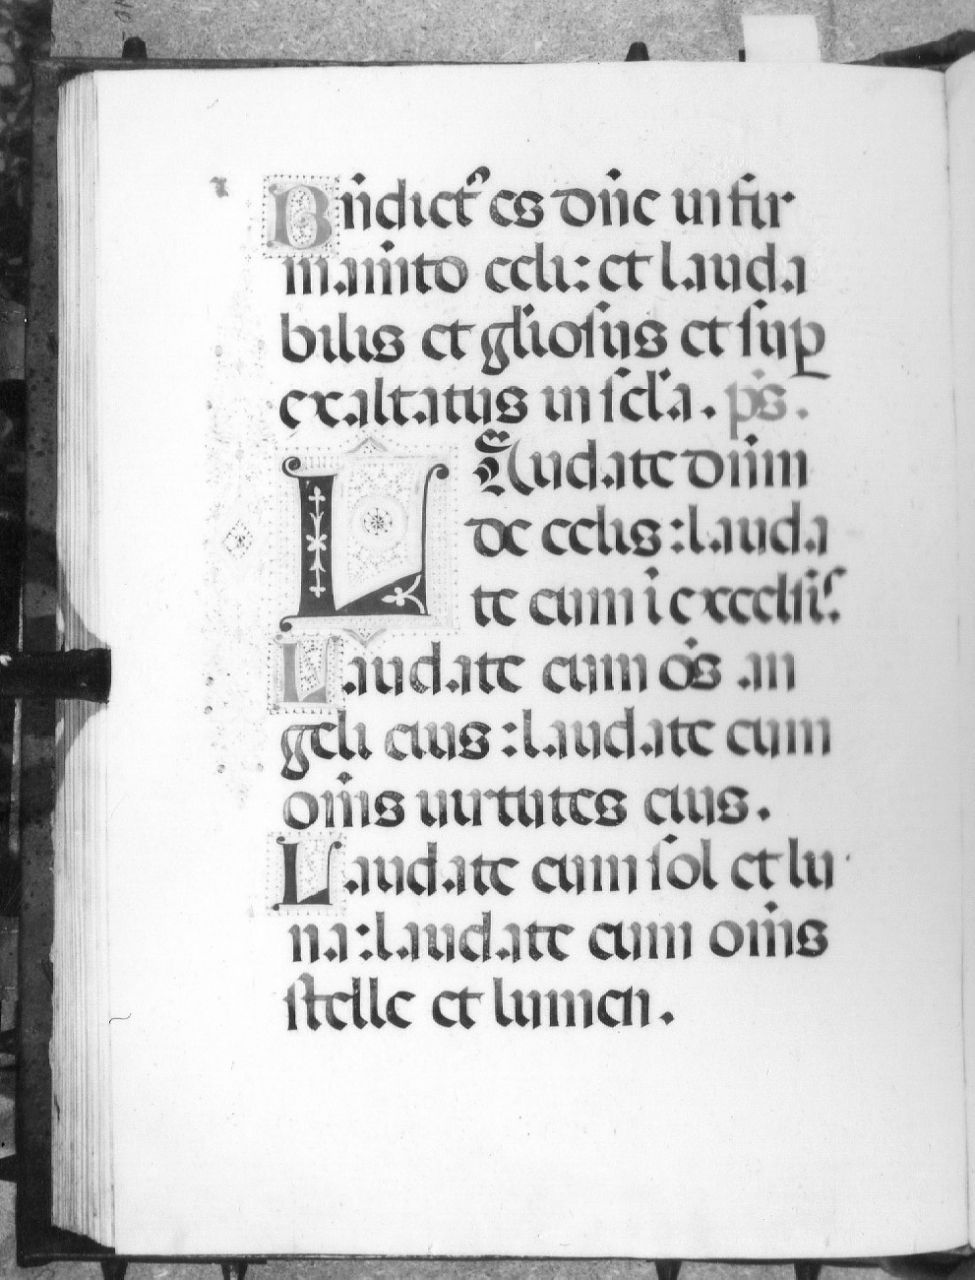 Bn̄dict᾿ es dn̄e in fir
mam̄to celi: et lauda
bilis et gl̄iosus et sup̱
exaltatus in sc̄l̄a. ps̄.
LAudate dn̄m
de celis: lauda
te eum ī excelsis.
Laudate eum om̄s an
geli eius: laudate eum
om̄s uirtutes eius.
Laudate eum sol et lu
na: laudate eum om̄s
stelle et lumen.